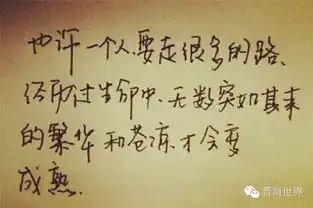 也许一个人、要走很多的路、
经历过生命中、无数突如其来
的繁华和苍凉、才会变
成熟.
普洱世界